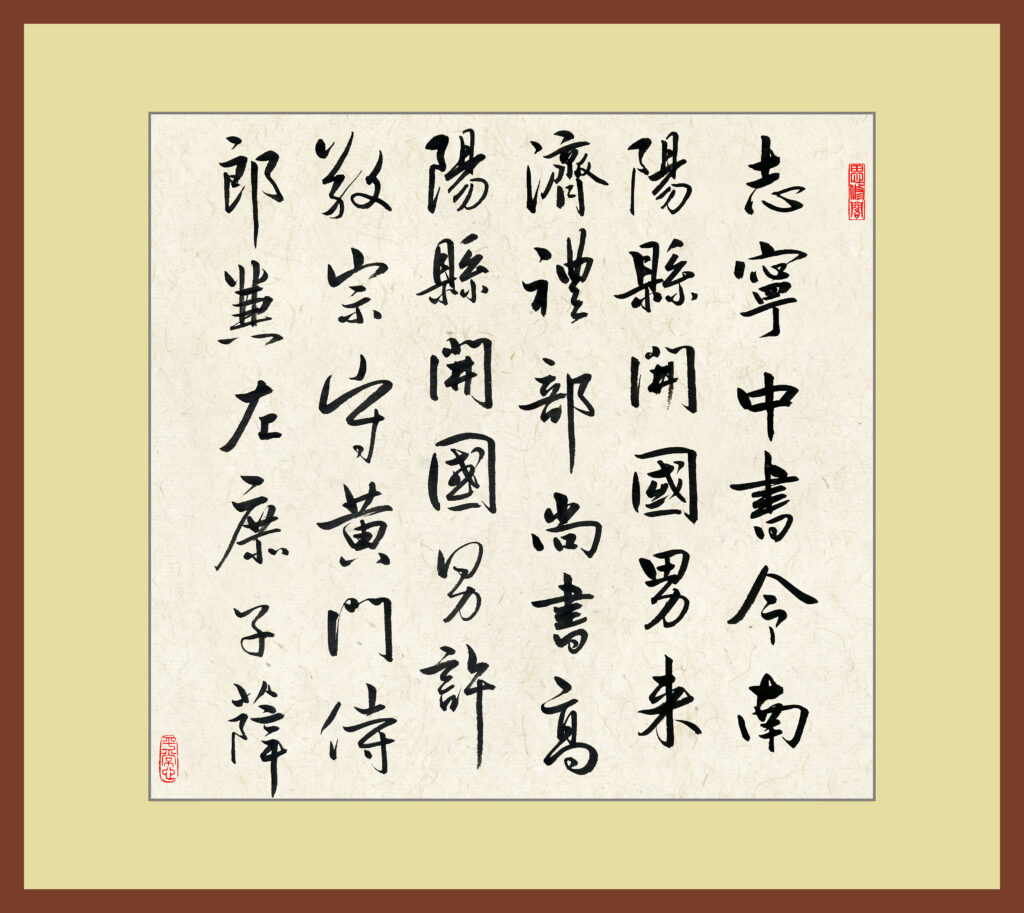 思修閣
志寧中書令南
陽縣開國男来
濟禮部尚書高
陽縣開國男許
敬宗守黄門侍
郎兼左庶子薛
平常心